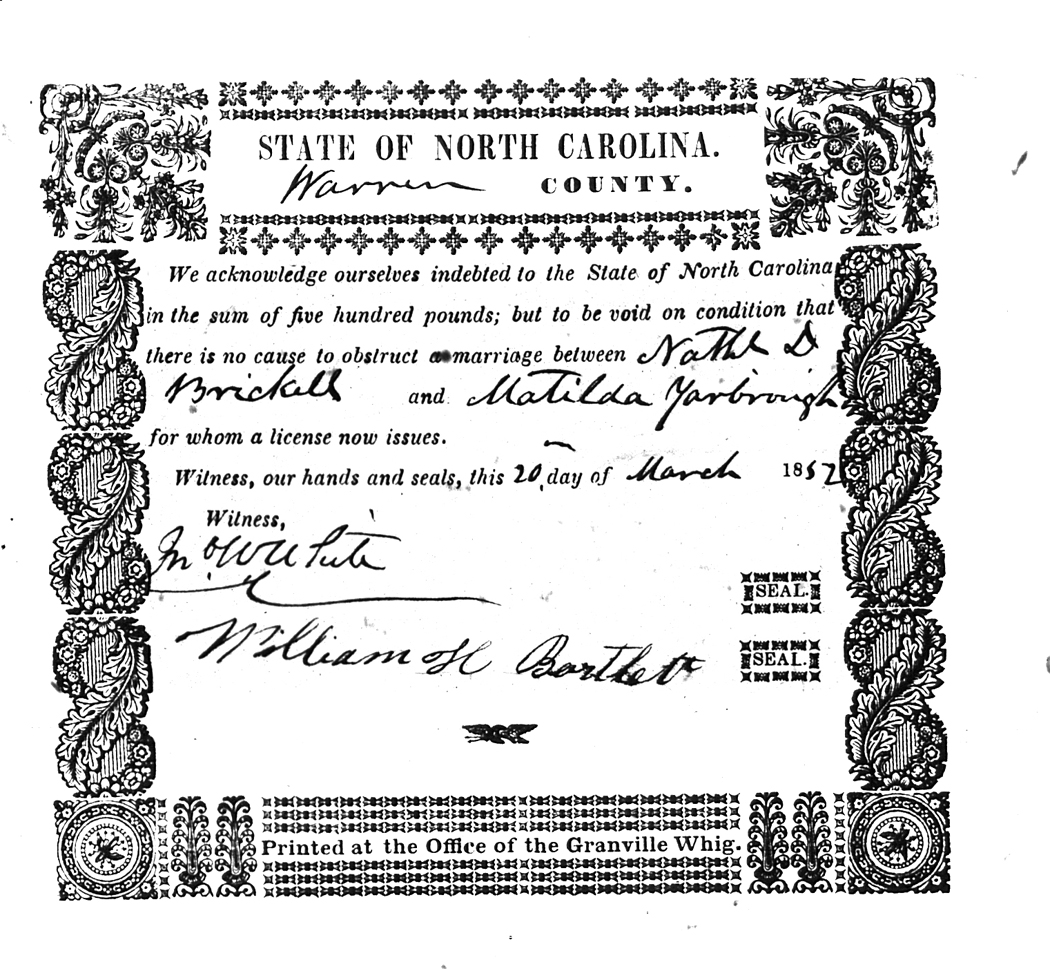 STATE OF NORTH CAROLINA.
Warren COUNTY.
We acknowledge ourselves indebted to the State of North Carolina
in the sum of five hundred pounds; but to be void on condition that
there is no cause to obstruct a marriage between Nathl D
Brickell and Matilda Yarbrough
for whom a license now issues.
Witness, our hands and seals, this 20 day of March 1852
Witness,
Jno W White
SEAL.
William H Bartlett
SEAL.
Printed at the Office of the Granville Whig.